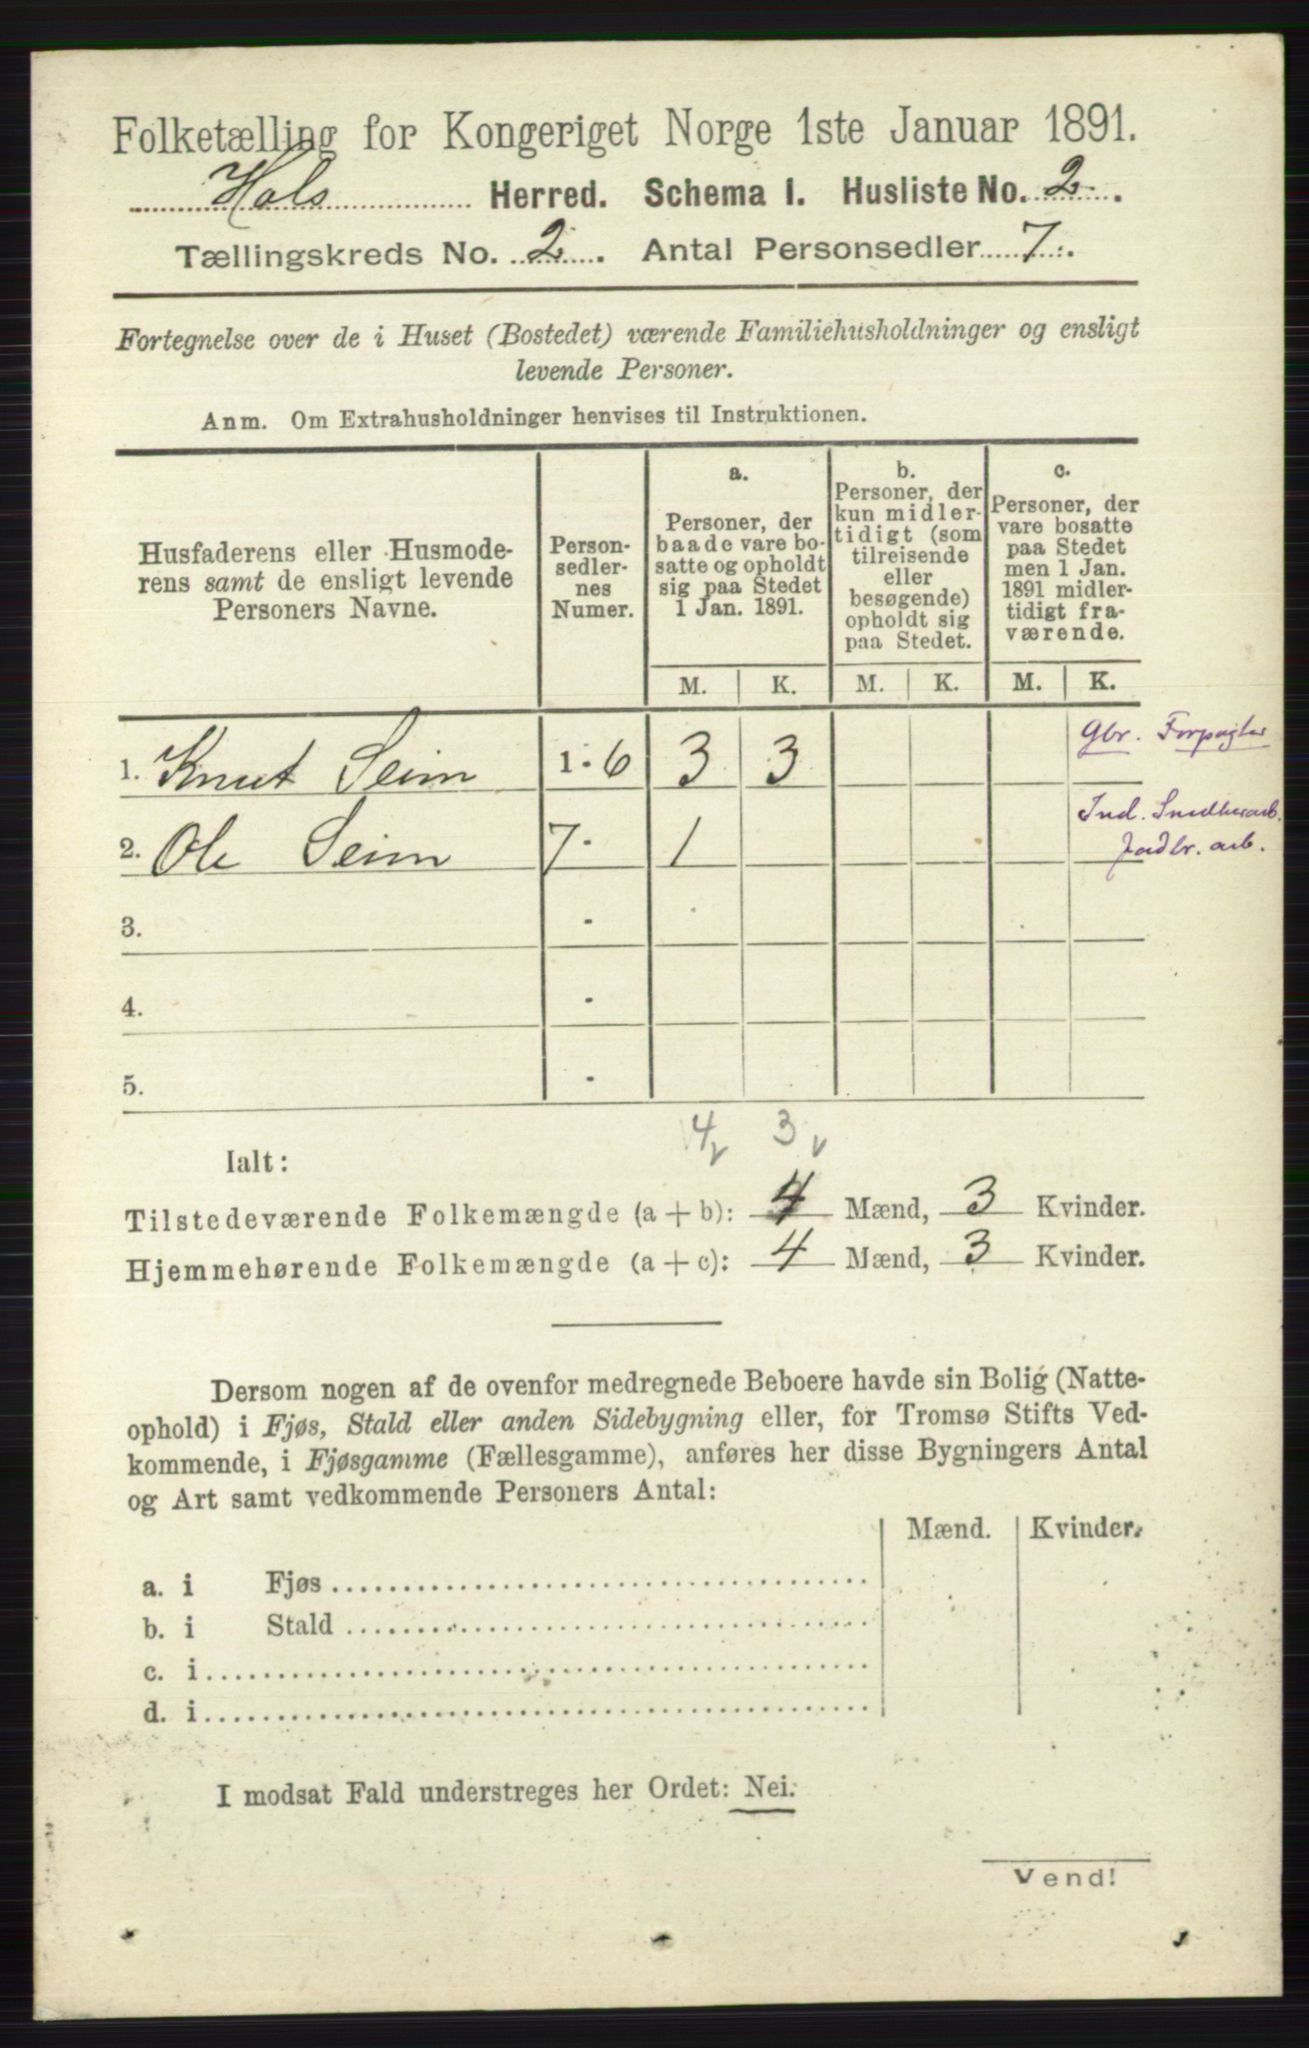 Folketælling for Kongeriget Norge 1ste Januar 1891.
Hals Herred. Schema I. Husliste No. 2.
Tællingskreds No. 2. Antal Personsedler 7.
Fortegnelse over de i Huset (Bostedet) værende Familiehusholdninger og ensligt
levende Personer.
Anm. Om Extrahusholdninger henvises til Instruktionen.
Husfaderens eller Husmode-
rens samt de ensligt levende
Personers Navne.
Person-
sedler-
nes
Numer.
a.
Personer, der
baade vare bo-
satte og opholdt
sig paa Stedet
1 Jan. 1891.
b.
Personer, der
kun midler-
tidigt (som
tilreisende
eller
besøgende)
opholdt sig
paa Stedet.
c.
Personer, der
vare bosatte
paa Stedet
men 1 Jan.
1891 midler-
tidigt fra-
værende.
M. K. M. K. M. K.
1. Knut Seim 1-6 3 3 Gbr. Forpagter
2. Ole Seim 7- 1 Ind. Snedkerarb.
Jordbr. arb.
3. -
4. -
5. -
4 3
Ialt:
Tilstedeværende Folkemængde (a + b): 4 Mænd, 3 Kvinder.
Hjemmehørende Folkemængde (a + c): 4 Mænd, 3 Kvinder.
Dersom nogen af de ovenfor medregnede Beboere havde sin Bolig (Natte-
ophold) i Fjøs, Stald eller anden Sidebygning eller, for Tromsø Stifts Ved-
kommende, i Fjøsgamme (Fællesgamme), anføres her disse Bygningers Antal
og Art samt vedkommende Personers Antal:
Mænd. Kvinder.
a. i Fjøs
b. i Stald
c. i
d. i
I modsat Fald understreges her Ordet: Nei.
Vend!